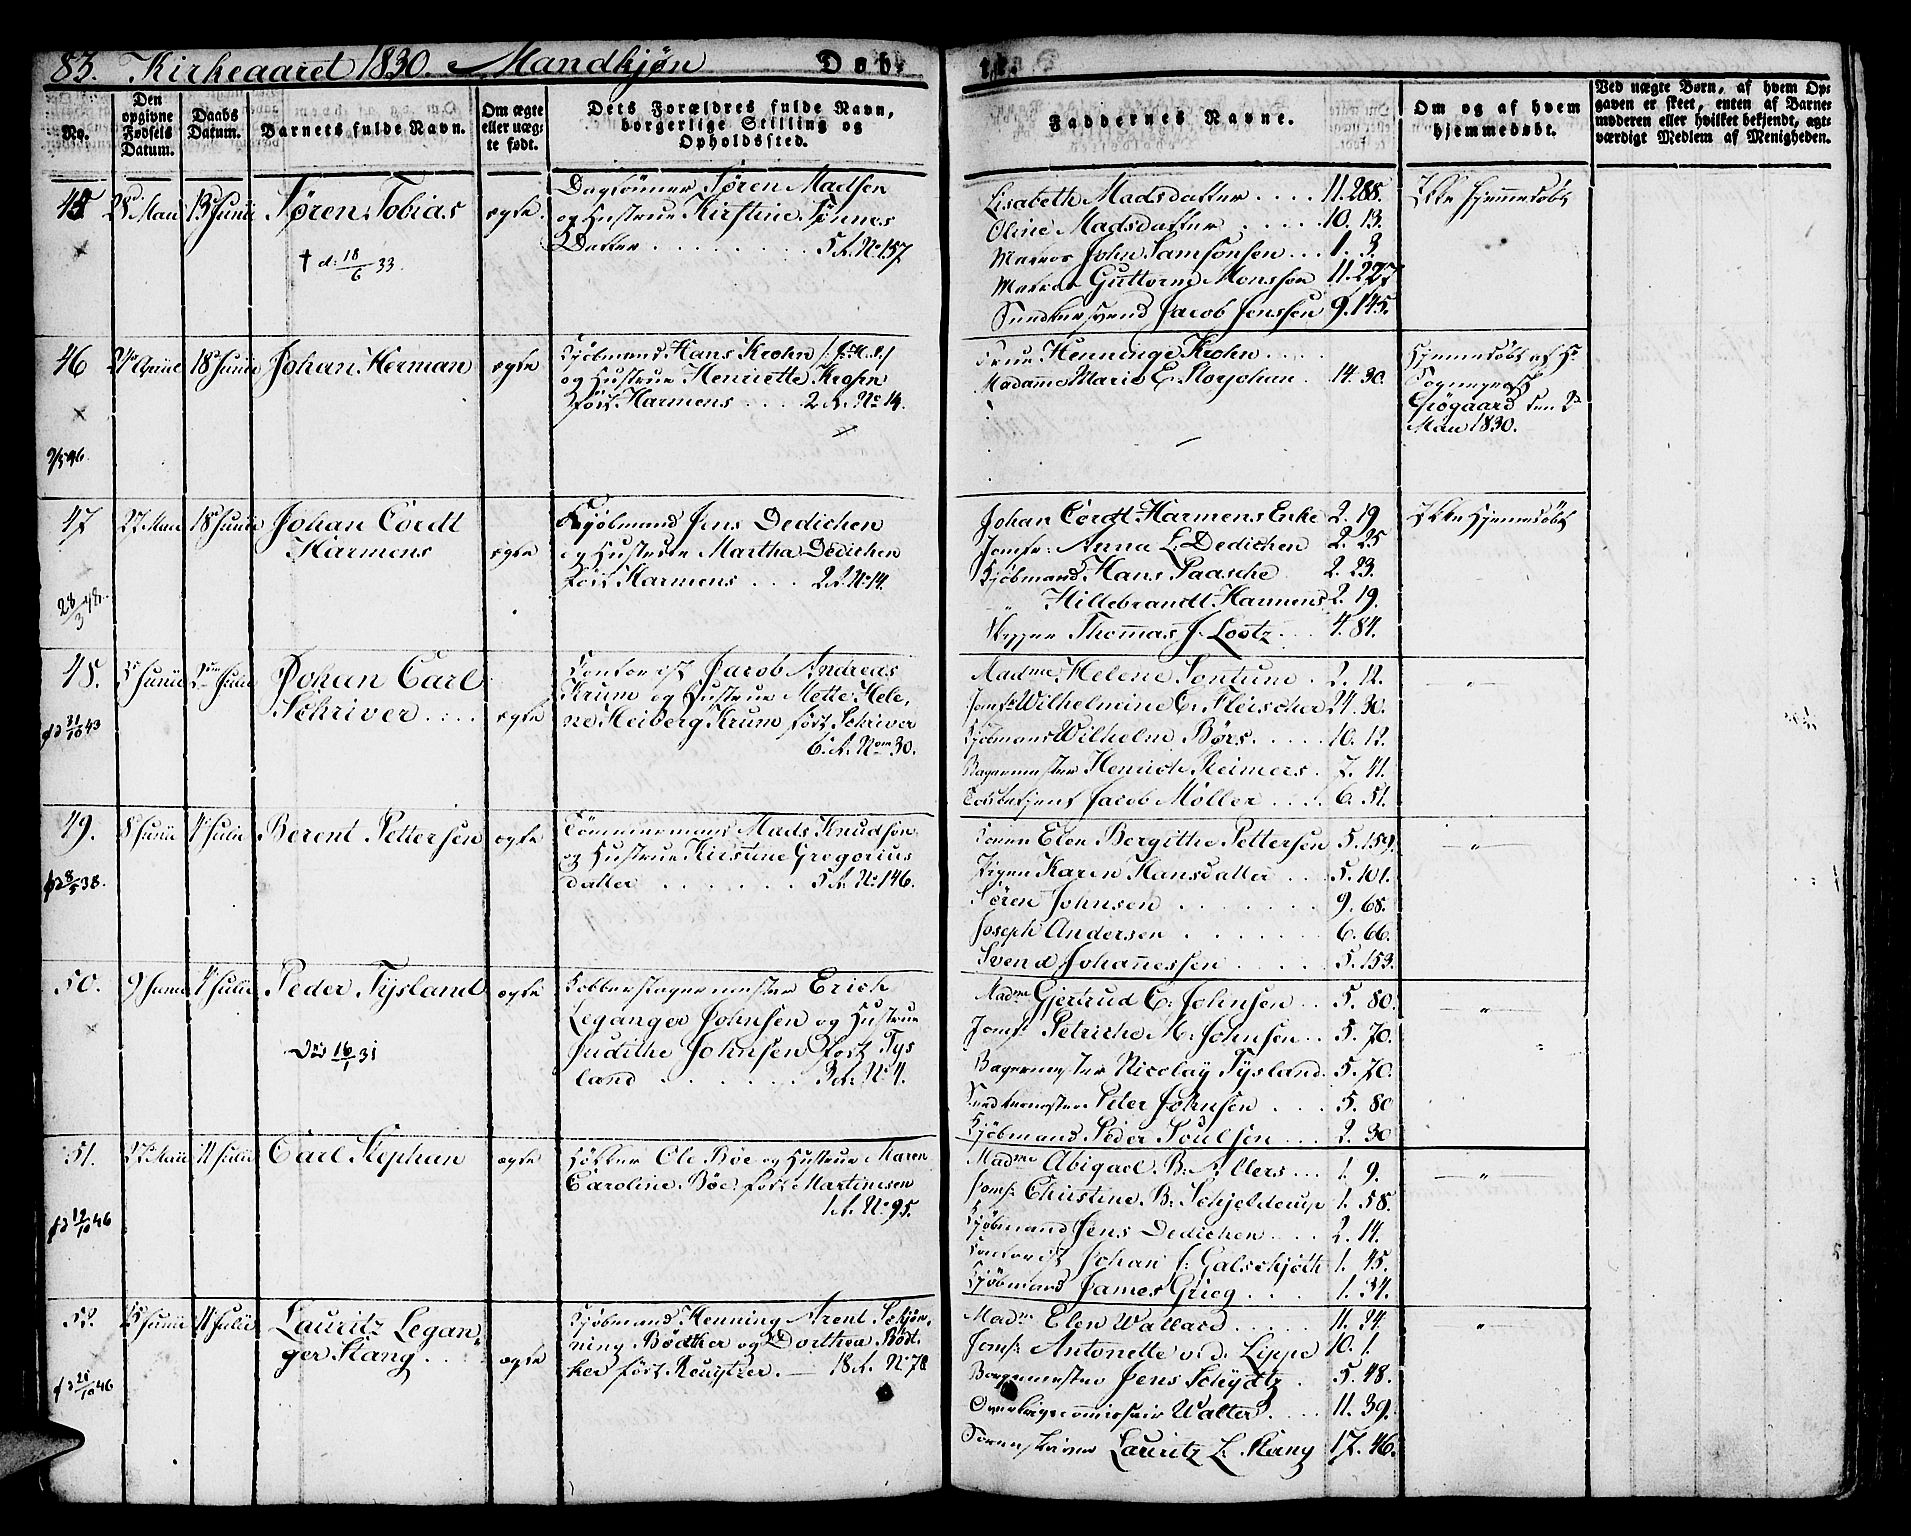 83. Kirkeaaret 1830. Mandkjøn
Døb-
te.
No.
Den opgivne Fødsels Datum.
Daabs Datum.
Barnets fulde Navn.
Om ægte eller uæg-te født.
Dets Forældres fulde Navn, borgerlige Stilling og Opholdssted.
Faddernes Navne.
Om og af hvem hjemmedøbt.
Ved uægte Børn, af hvem Op-
gaven er skeet, enten af Barne-
moderen eller hvilket bekjendt, agt-
værdigt Medlem af Menigheden.
45
28 Maii
13 Junii
Søren Tobias
† d: 18/6 33.
ægte.
Daglönner Søren Madsen
og Hustrue Kirstine Tønnes
Datter . . . . 5 R. No 157
Lisabeth Madsdatter . . . . 11. 288.
Oline Madsdatter . . . . 10. 13.
Matros John Samsonsen . . . 1. 3.
Matros Guttorm Monsson 11. 227
Snedkersvend Jacob Jenssen 9. 145.
Ikke hjemmedøbt
46
9/5 46.
18 Junii
Johan Herman
ægte
Kjøbmand Hans Krohn
og Hustrue Henriette Krohn
født Harmens . . . . 2 R. No 14.
Frue Henninge Krohn . . . .
Madame Marie E. Storjohan . 14. 30.
Hjemmedøbt af Hr
Sognepræst
Gjøgaard den 2d
Maii 1830.
47
28/3 42.
27 Maii
18 Junii
Johan Cordt
Harmens
ægte
Kjøbmand Jens Dedichen
og Hustrue Martha Dedichen
født Harmens . . . 2 R. No 14.
Johan Cordt Harmens Enke 2. 19
Jomfr: Anna L. Dedichen 2. 25
Kjøbmand Hans Paasche 2. 23.
" Hillebrandt Harmens 2. 19.
Skipper Thommas J. Lootz . . 4. 84.
Ikke hjemmedøbt
48.
fd 31/10 43
Junii
Julii
Johan Carl
Schriver . . . .
ægte
Contorist Jacob Andreas
Krum og Hustrue Mette Hele-
ne Heiberg Krum født Schriver
6. R. Nom 30.
Madme Helene Sontum . 2. 12.
Jomfr Wilhelmine C. Fleischer 24. 30.
Kjøbmand Wilhelm Børs . . . . . 10. 12.
Bagermester Henrich Reimers . 7. 41.
Toldbetjent Jacob Møller . . . 6. 51.
"
49.
fd 8/5 38.
8 Junii
4 Julii
Berent Pettersen
ægte
Tömmermand Mads Knudsøn
og Hustrue Kirstine Gregorius
datter . . . . . . . 5 R. No 146.
Konen Elen Bergithe Pettersen 5. 159.
Pigen Karen Hansdatter . . . 5. 101.
Søren Johnsen . . . . . . . 9. 68.
Joseph Andersen . . . . . . 6. 66.
Svend Johannessen . . . . . 5. 153.
"
50.
9 Junii
4 Julii
Peder Tysland
Død 16/1 31
ægte
Kobberslagermester Erich
Leganger Johnsen og Hustrue
Judithe Johnsen født Tys
land . . . . . . . 3 R: No 4.
Madme Gjertrud C: Johnsen . . 5. 80.
Jomfr Petriche M. Johnsen . . 5. 70.
Bagermester Nicolay Tysland . 5. 70.
Snedkermester Peter Johnsen . . . 5. 80
Kjøbmand Peder Poulsen . . . 2. 30
"
51.
fd 12/10 46
27 Maii
11 Julii
Carl Stephan
ægte
Høker Ole Böe og Hustrue Maren
Caroline Böe født Martinesen
1. R. No 95.
Madme Abigael B: Allers . . . 1. 9.
Jomf: Christine B. Schjelderup 1. 58.
Kjøbmand Jens Dedichen . . . . 2. 14.
Contorist Johan F: Galschjöth 1. 45.
Kjøbmand James Grieg . . . 1. 34.
"
52.
fd 20/10 46
15 Junii
11 Julii
Lauritz Legan-
ger Stang . . .
ægte
Kjøbmand Henning Arent Schjøn-
ning Bødtker og Dorthea Bödt-
ker født Kreutzer. — 18 R. No 70
Madm Elen Wallace . . . . . 11. 24.
Jomf: Antonette v. d. Lippe 10. 1.
Bagermester Jens Schydtz . 5. 48.
Overkrigscommissair Walter . . . . 11. 39.
Sorenskriver Lauritz L. Stang 17. 46.
"